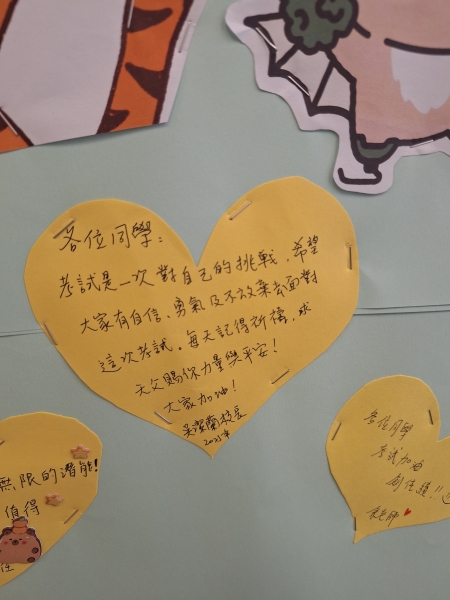 各位同學：
考試是一次對自己的挑戰，希望
大家有自信、勇氣及不放棄去面對
這次考試。每天記得祈禱，求
天父賜你力量與平安！
大家加油！
吳潔蘭校長
2025年
無限的潛能！
值得
任
各位同學
考試加油
創佳績！！
老師